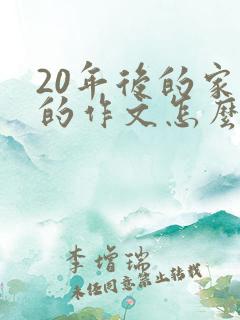 20年后的家
的作文怎么
李增瑞
未经同意禁止转载